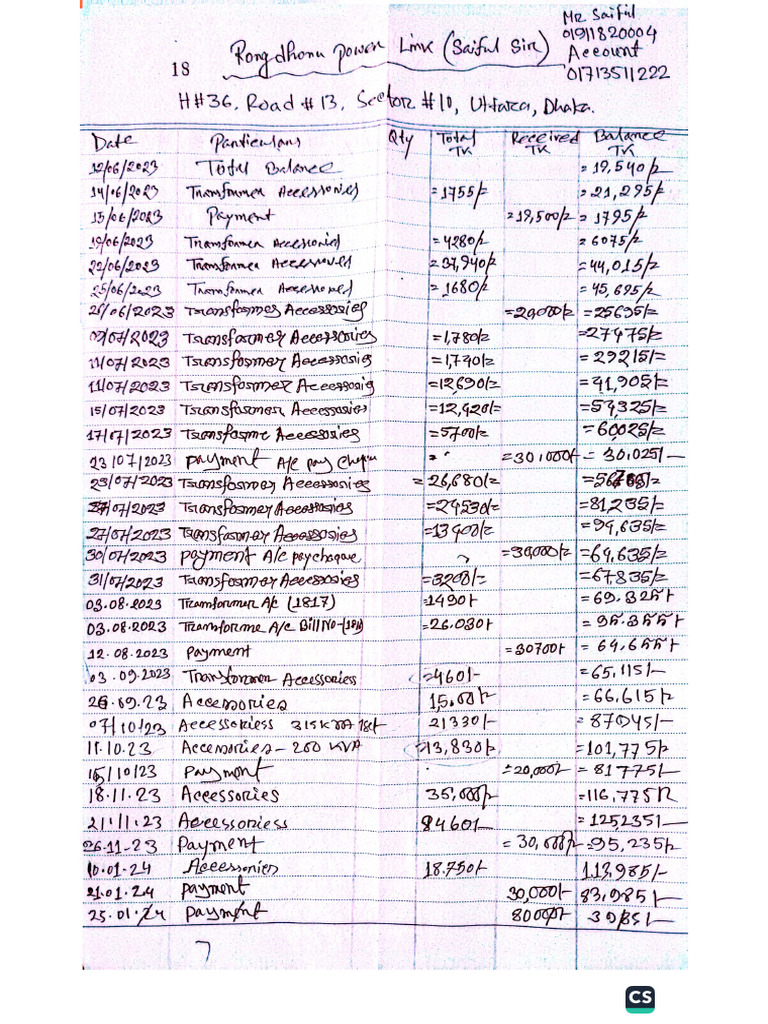 Mr Saiful
01911820004
Account
01713511222
18 Rongdhonu power Link (Saiful Sir)
H#36, Road #13, Sector #10, Uttara, Dhaka.
Date Particulars Qty Total TK Received TK Balance TK
12/06/2023 Total Balance = 19,540/=
14/06/2023 Transformer Accessories = 1755/= = 21,295/=
15/06/2023 Payment = 19,500/= = 1795/=
19/06/2023 Transformer Accessories = 4280/= = 6075/=
22/06/2023 Transformer Accessories = 37,940/= = 44,015/=
25/06/2023 Transformer Accessories = 1680/= = 45,695/=
26/06/2023 Transformer Accessories = 20,000/= = 25695/=
09/07/2023 Transformer Accessories = 1,780/= = 27475/=
11/07/2023 Transformer Accessories = 1,740/= = 29215/=
11/07/2023 Transformer Accessories = 12,690/= = 41,905/=
15/07/2023 Transformer Accessories = 12,420/= = 54,325/=
17/07/2023 Transforme Accessories = 5700/= = 60025/=
23/07/2023 payment A/c pay = 30,000/- = 30,025/-
23/07/2023 Transformer Accessories = 26,680/= = 56705/=
27/07/2023 Transformer Accessories = 24530/= = 81,235/=
27/07/2023 Transformer Accessories = 13400/= = 94,635/=
30/07/2023 payment A/c paycheque = 30,000/= = 64,635/=
31/07/2023 Transformer Accessories = 3200/= = 67835/=
03.08.2023 Transformer A/c (1817) = 1490/- = 69.325/-
03.08.2023 Transforme A/c Bill No- = 26.030/- = 95.355/-
12.08.2023 payment = 30700/- = 64,655/-
03.09.2023 Transformer Accessories = 460/- = 65,115/-
26.09.23 Accessories 15,00/- = 66,615/=
07/10/23 Accessoriess 315KVA 21330/- = 87945/-
11.10.23 Accessories - 200 KVA = 13,830/- = 101,775/=
15/10/23 payment = 20,000/- = 81775/-
18.11.23 Accessories 35,000/= = 116,775/=
21.11.23 Accessoriess 8460/- = 125,235/-
26-11-23 Payment = 30,000/= = 95,235/=
10.01.24 Accessories 18.750/- 113,985/-
21.01.24 payment 30,000/- 83,985/-
25.01.24 payment 80000/- 3985/-
CS